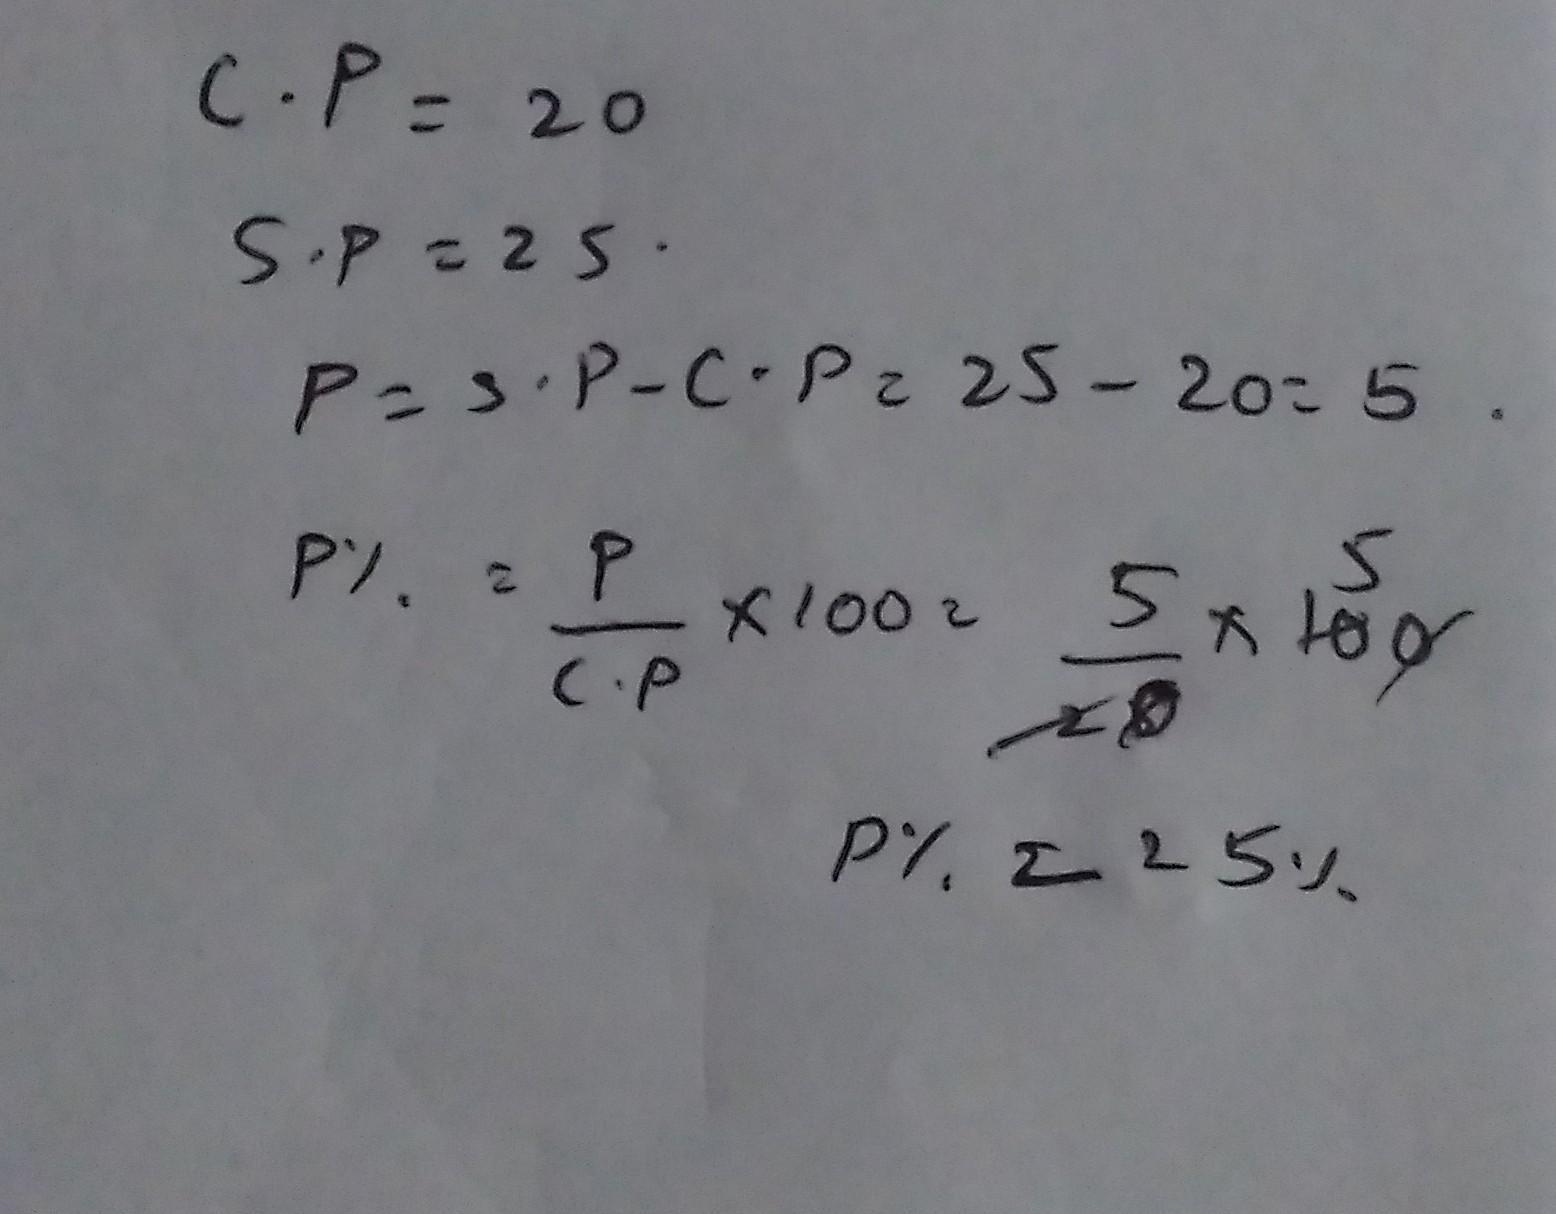 C.P = 20
S.P = 25.
P = S.P - C.P = 25 - 20 = 5.
P% = P/C.P × 100 = 5/20 × 100 5
P% = 25%